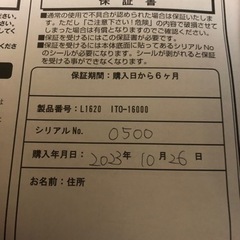 保証書
■通常の使用で不具合が認められた場合は保証いたします。
ただし「ご注意下さい！危険」の内容で破損させてし
まった場合は有償となりますのでご了承下さい。
■保証を受けるにはこの保証書が必要です。
■保証を受けるには本体底面に貼ってあるシリアルNo
のシールが必要になります。シールが剥がれると保証を
受ける事ができなくなります。
保証期間：購入日から6ヶ月
製品番号：L1620 ITO-16000
シリアルNo. 0500
購入年月日：2023年 10月 26日
お名前：住所